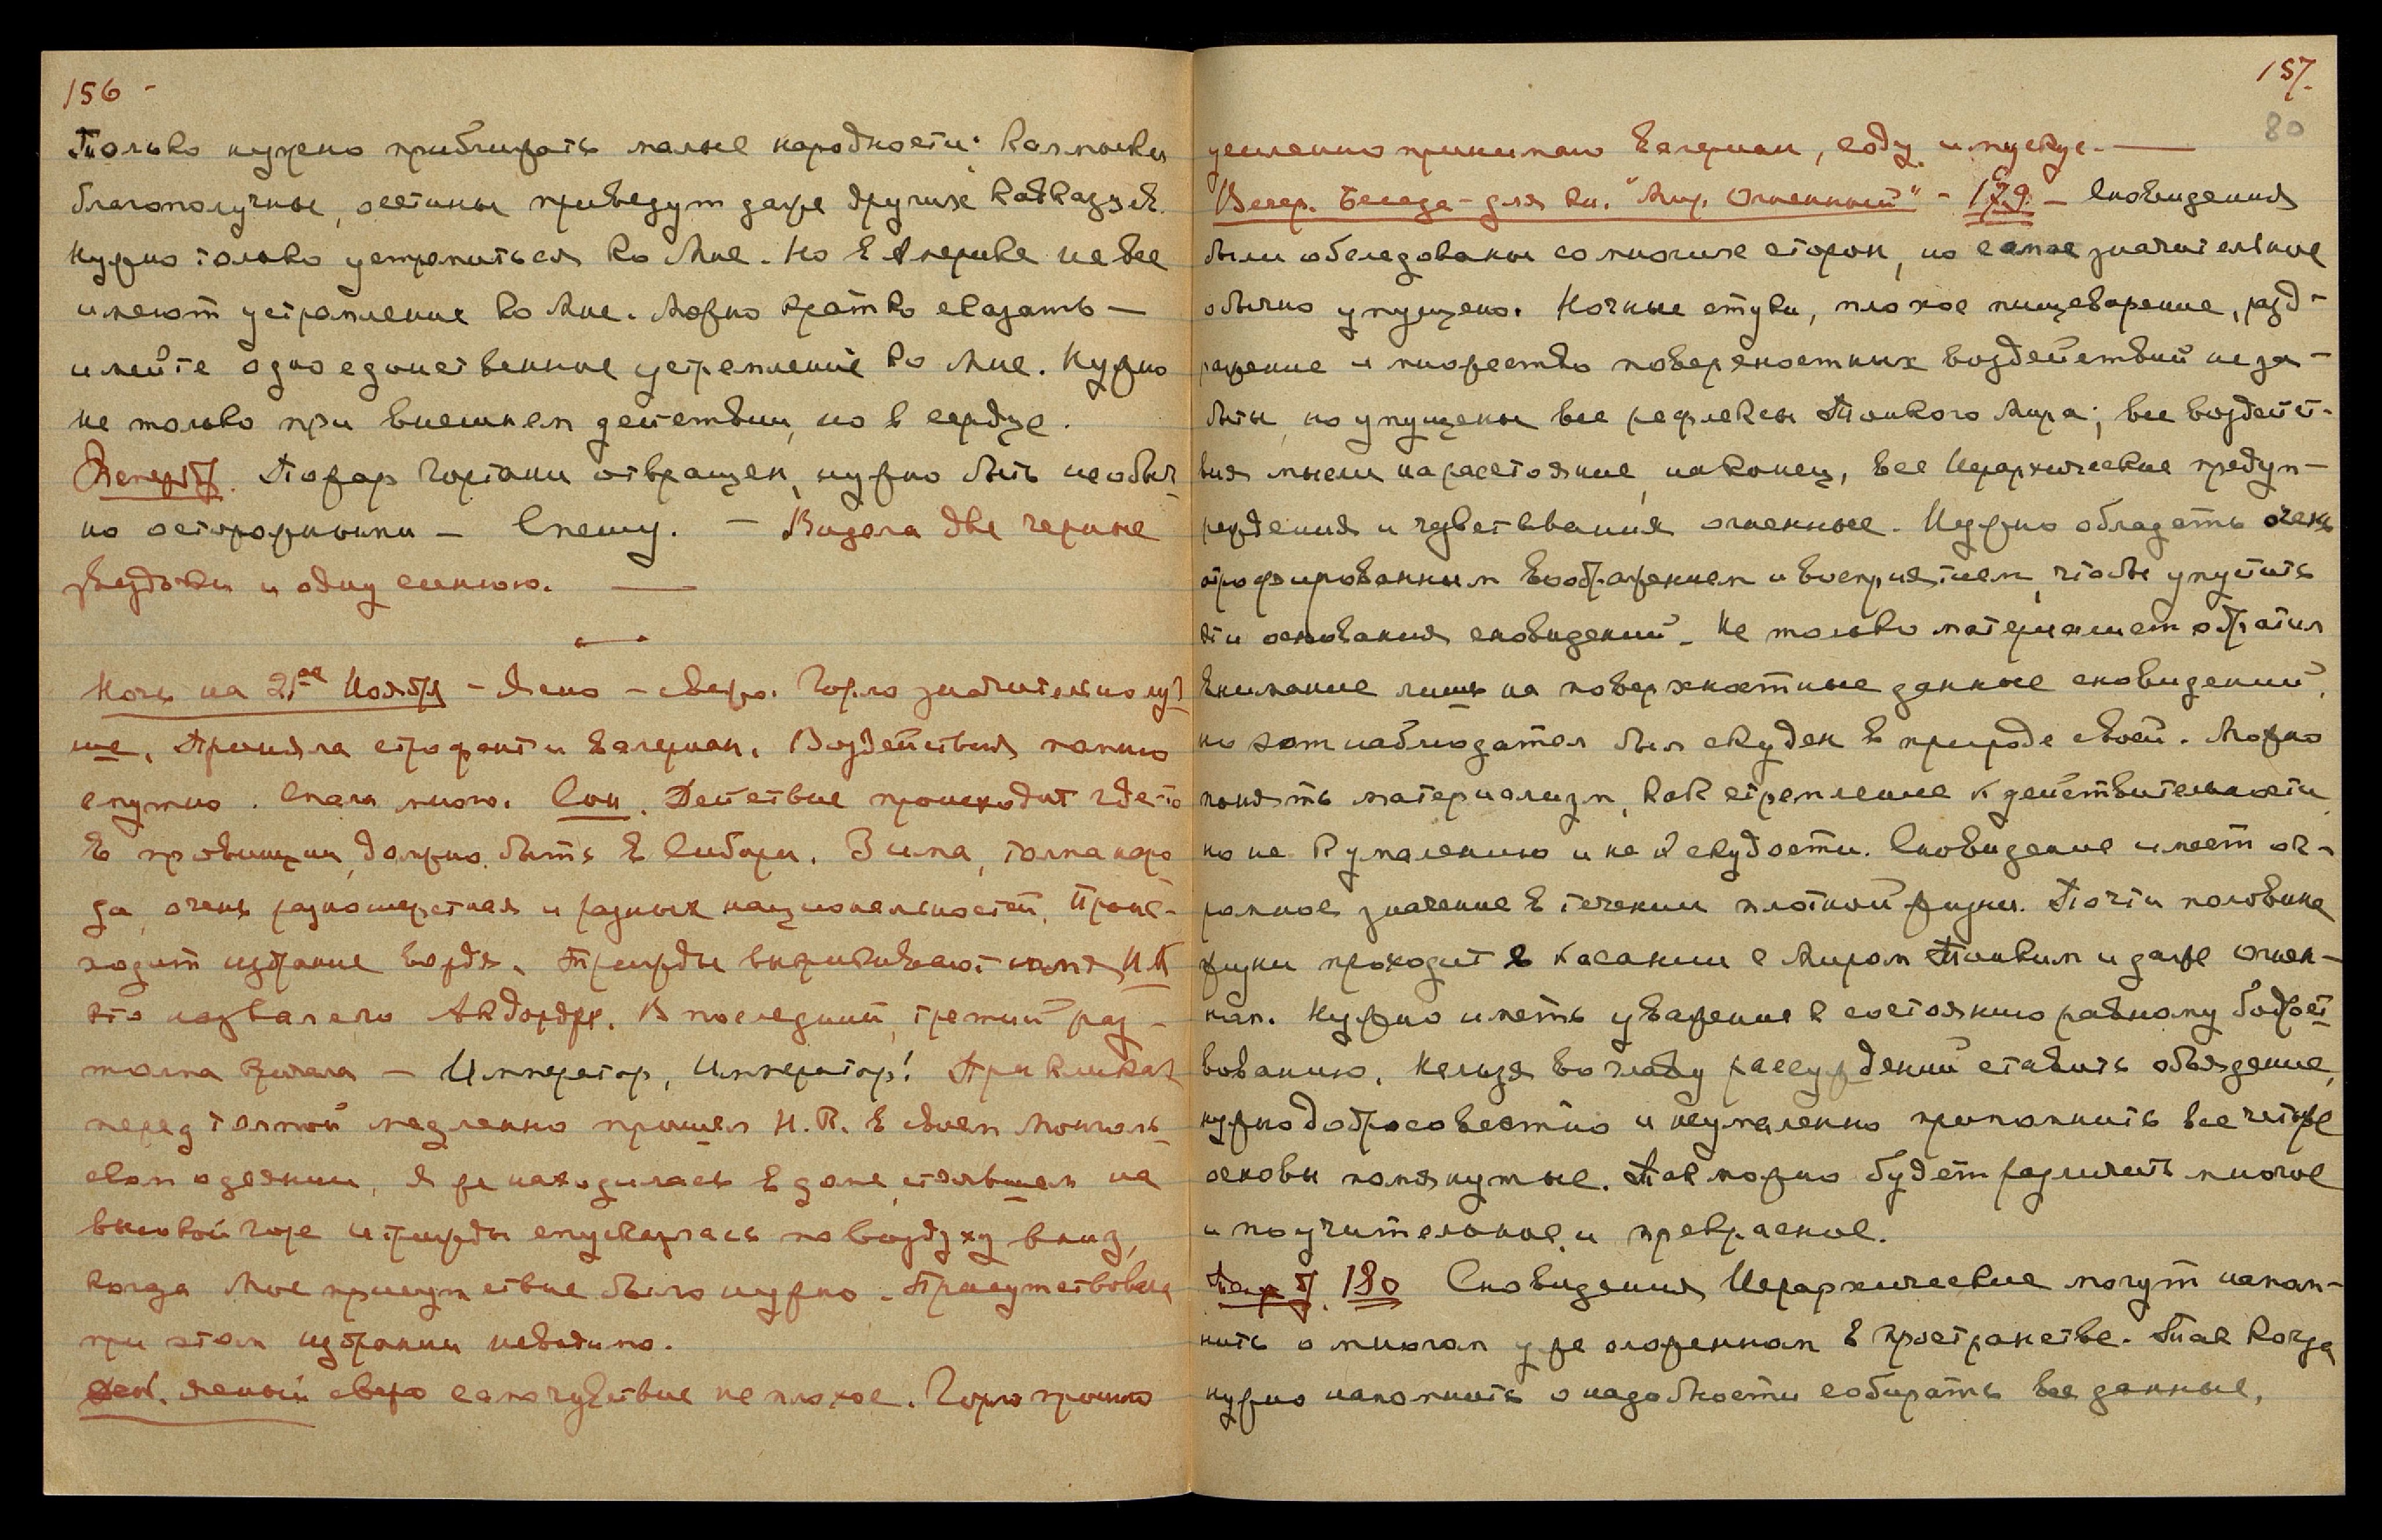 156 -
Только нужно приближать малые народности: калмыки
благополучны, осетины приведут даже других кавказцев.
Нужно только устремиться ко Мне. Но в Америке не все
имеют устремление ко Мне. Можно кратко сказать —
имейте одно единственное устремление ко Мне. Нужно
не только при внешнем действии, но в сердце.
Пожар гортани отвращен, нужно быть необыч-
но осторожными — Спешу. — Видела две черные
звездочки и одну синюю. —
Ночь на 21ое Ноября — Ясно — свежо. Горло значительно луч-
ше. Приняла строфант и валериан. Воздействия помню
смутно. Спала много. Сон. Действие происходит где-то
в провинции, должно быть в Сибири. Зима, толпа наро-
да, очень разношерстная и разных национальностей. Проис-
ходит избрание вождя. Трижды выкрикивают имя Н.К.
это назвал его Акдордже. В последний, третий раз —
толпа кричала — Император, Император! При кликах
перед толпой медленно прошел Н.К. в своем монголь-
ском одеянии, я же находилась в доме, стоявшем на
высокой горе и трижды спускалась по воздуху вниз,
когда мое присутствие было нужно. Присутствовала
при этом избрании невидимо.
День. ясный свежо самочувствие не плохое. Горло прошло
157.
80
усиленно принимаю валериан, соду и мускус. —
Вечер. Беседа - для кн. "Мир Огненный" - 179 - Сновидения
были обследованы со многих сторон, но самое значительное
обычно упущено. Ночные стуки, плохое пищеварение, разд-
ражение и множество поверхностных воздействий не за-
быты, но упущены все рефлексы Тонкого Мира; все воздейст-
вия мысли на расстояние, наконец, все Иерархические предуп-
реждения и чувствования огненные. Нужно обладать очень
атрофированным воображением и восприятием, чтобы упустить
эти основания сновидений. Не только материалист обратил
внимание лишь на поверхностные данные сновидений,
но этот наблюдатель был скуден в природе своей. Можно
понять материализм, как стремление к действительности,
но не к умалению и не к скудости. Сновидение имеет ог-
ромное значение в течении плотной жизни. Почти половина
жизни проходит в касании с Миром Тонким и даже Огнен-
ным. Нужно иметь уважение к состоянию равному бодрст-
вованию. Нельзя во главу рассуждений ставить объядение,
нужно добросовестно и неумаленно припомнить все четыре
основы помянутые. Так можно будет различить многое
и поучительное, и прекрасное.
180 Сновидения Иерархические могут напом-
нить о многом уже сложенном в пространстве. Так когда
нужно напомнить о надобности собирать все данные,